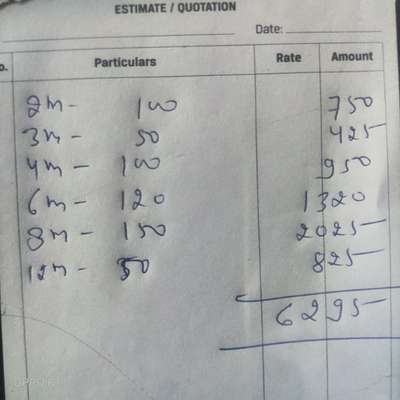 ESTIMATE / QUOTATION
Date:
o. Particulars Rate Amount
2m - 100 750
3m - 50 425
4m - 100 950
6m - 120 1320
8m - 150 2025
12m - 50 825
6295
OPPO